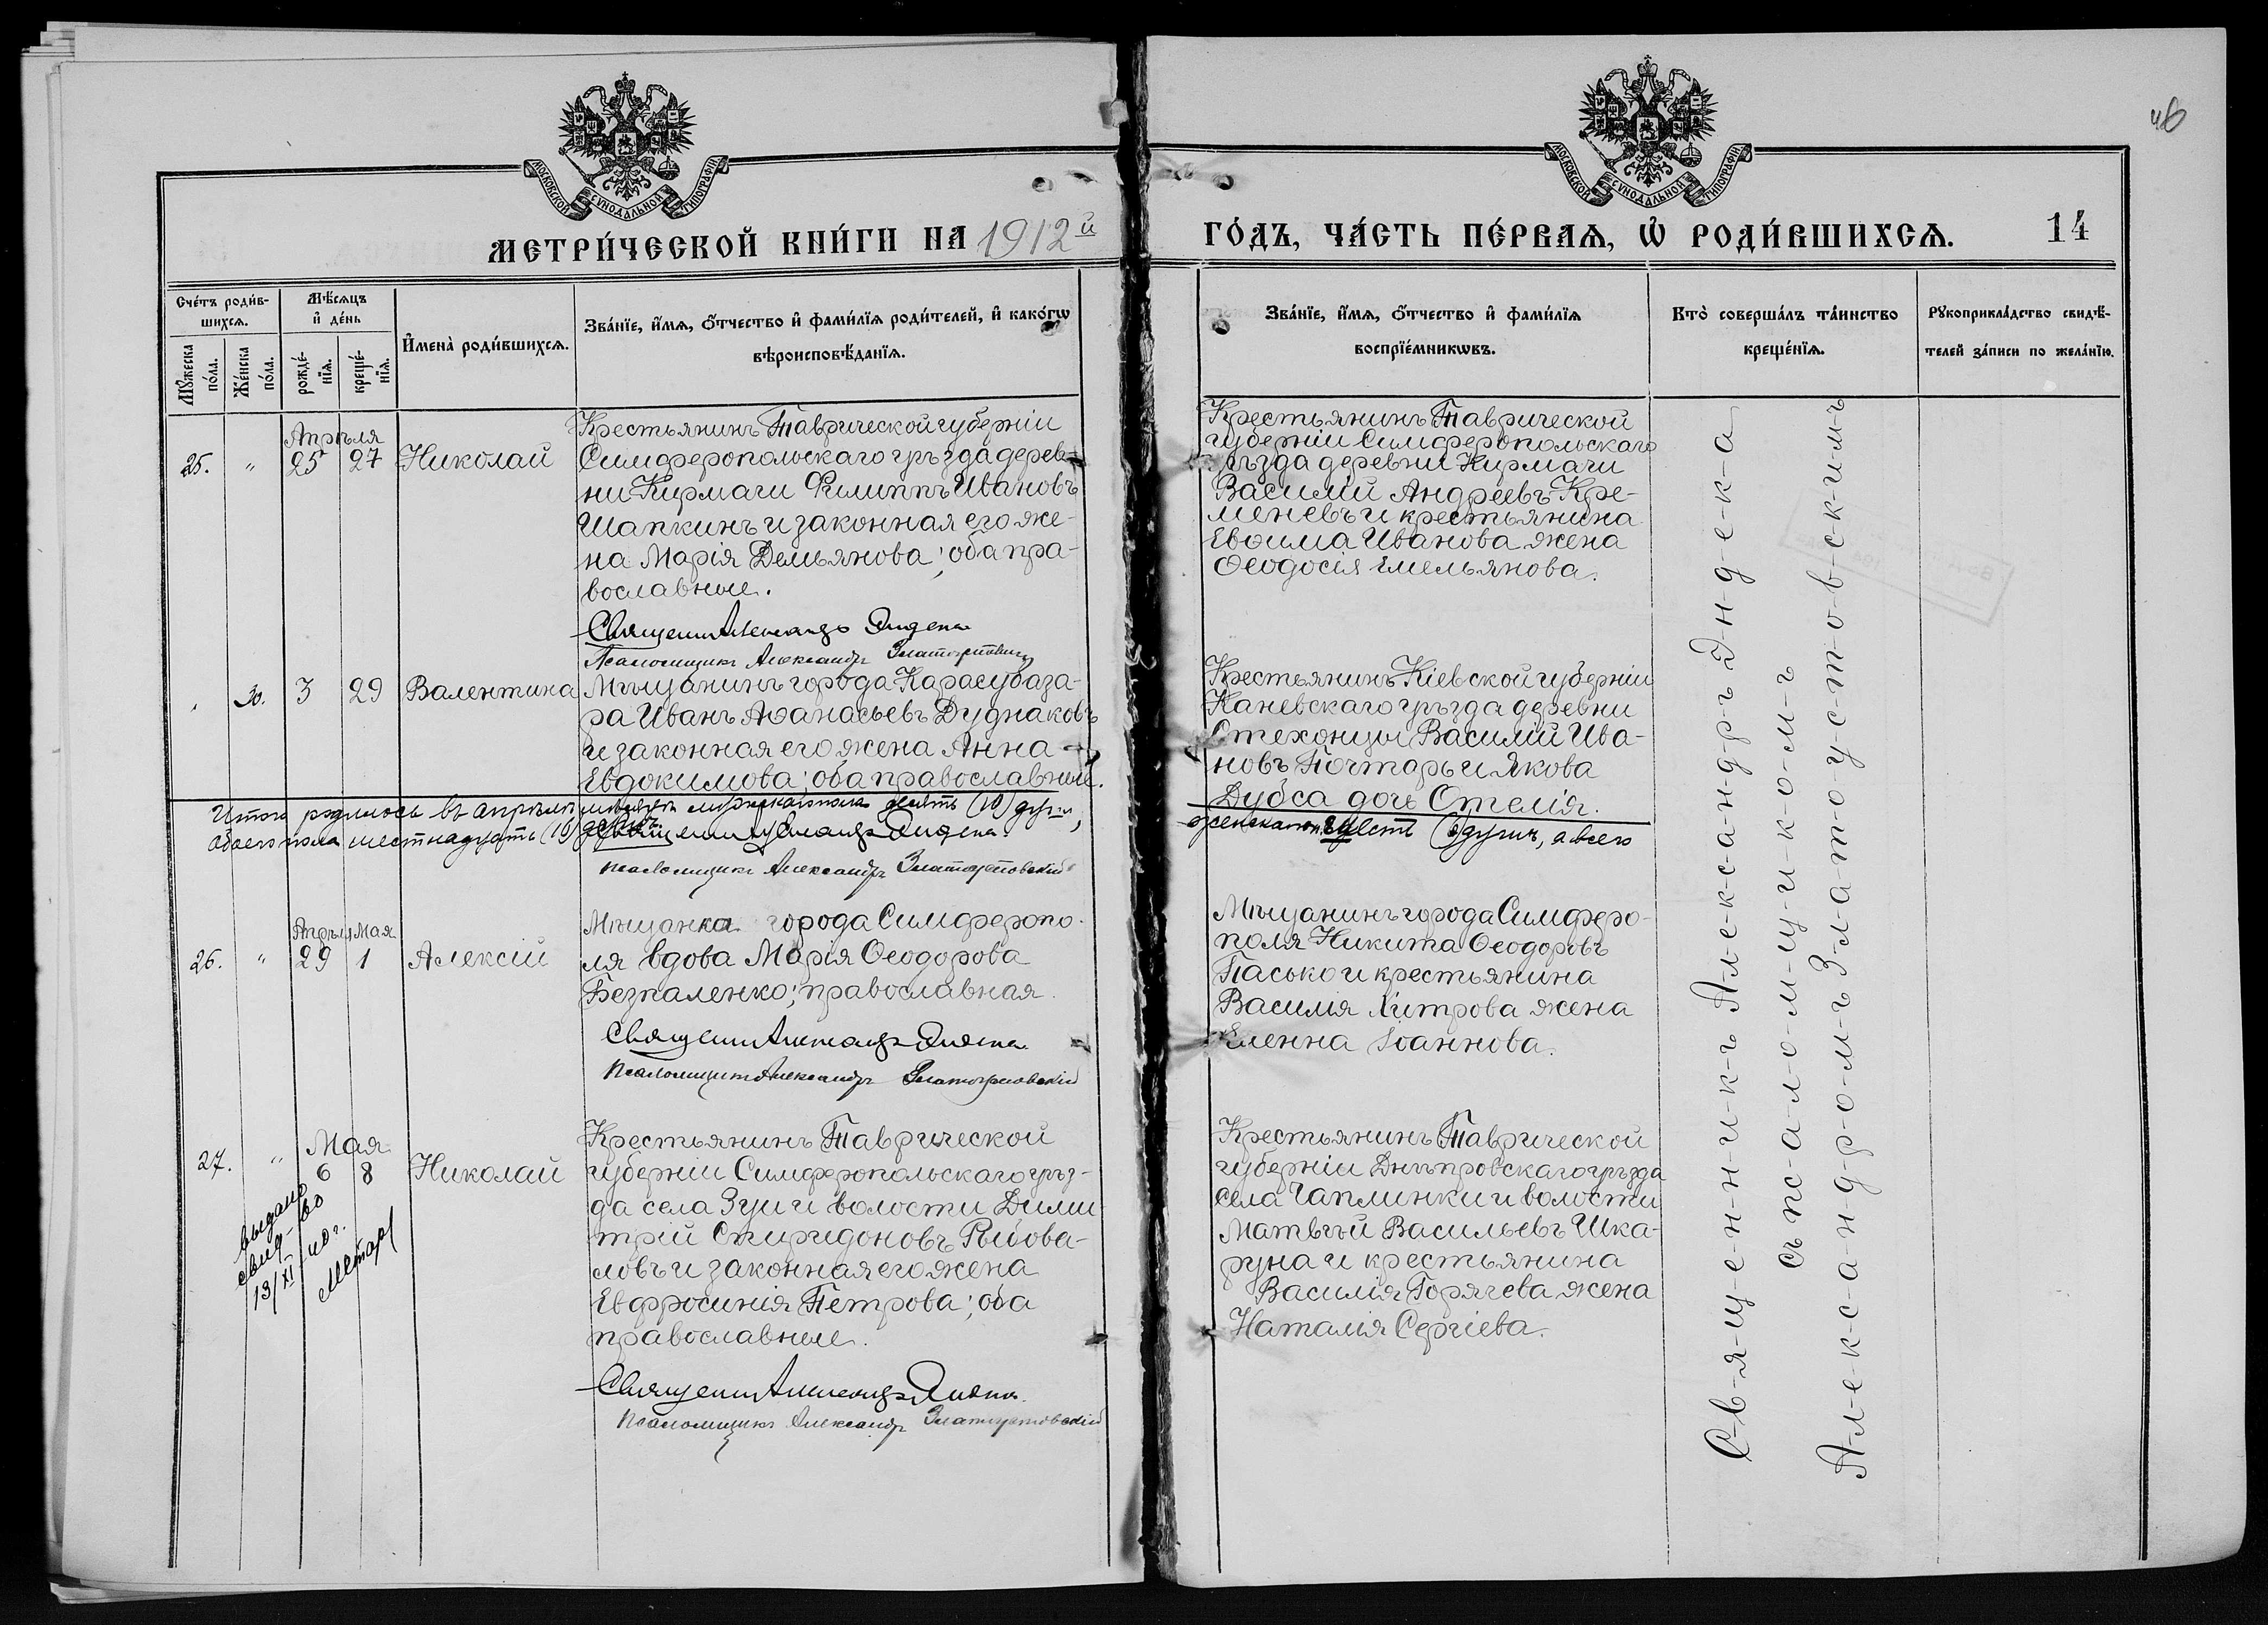 46
МОСКОВСКОЙ СѴНОДАЛЬНОЙ ТИПОГРАФІИ
МОСКОВСКОЙ СѴНОДАЛЬНОЙ ТИПОГРАФІИ
МЕТРИ́ЧЕСКОЙ КНИ́ГИ НА 1912й
ГО́ДЪ, ЧА́СТЬ ПЕ́РВАѦ, Ѡ҆ РОДИ́ВШИХСѦ. 14
Сче́тъ роди́в-
шихсѧ.
Мꙋ́жеска по́ла.
Же́нска по́ла.
Мѣ́сѧцъ
и҆ де́нь
рожде́-
нїѧ.
креще́-
нїѧ.
И҆мена̀ роди́вшихсѧ.
Зва́нїе, и҆́мѧ, ѻ҆́тчество и҆ фами́лїѧ роди́телей, и҆ како́гѡ
вѣроисповѣ́данїѧ.
Зва́нїе, и҆́мѧ, ѻ҆́тчество и҆ фами́лїѧ
воспрїе́мникѡвъ.
Кто̀ соверша́лъ та́инство
креще́нїѧ.
Рꙋкоприкла́дство свидѣ́-
телей за́писи по жела́нїю.
Апрѣля
25. " 25 27 Николай
Крестьянинъ Таврической губерніи
Симферопольскаго уѣзда дерев-
ни Кирмачи Филиппъ Ивановъ
Шапкинъ и законная его же-
на Марія Демьянова; оба пра-
вославные.
Священн Александр Эндека
Псаломщикъ Александръ Златоустовскій
Крестьянинъ Таврической
губерніи Симферопольскаго
уѣзда деревни Кирмачи
Василій Андреевъ Кре-
меневъ и крестьянина
Евѳима Иванова жена
Ѳеодосія Емельянова.
30. 3 29 Валентина
Мѣщанинъ города Карасубаза-
ра Иванъ Аѳанасьевъ Дуднаковъ
и законная его жена Анна
Евдокимова; оба православные.
Крестьянинъ Кіевской губерніи
Каневскаго уѣзда деревни
Стехонцы Василій Ива-
новъ Почтарь и Якова
Дубса дочь Отелія.
Итого родилось въ апрѣлѣ мѣсяцѣ мужскаго пола десять (10) душъ,
женскаго шесть (6) душъ, а всего
обоего пола шестнадцать (16) душъ.
Священн Александръ Эндека
Псаломщикъ Александръ Златоустовскій
Апрѣля Мая
26. " 29 1 Алексій
Мѣщанка города Симферопо-
ля вдова Марія Ѳеодорова
Безпаленко; православная.
Священн Александръ Эндека
Псаломщикъ Александръ Златоустовскій
Мѣщанинъ города Симферо-
поля Никита Ѳеодоровъ
Пасько и крестьянина
Василія Хитрова жена
Еленна Іоаннова.
Мая
27. " 6 8 Николай
выдано
свид-во
13/XI 40 г.
Крестьянинъ Таврической
губерніи Симферопольскаго уѣз-
да села Зуи и волости Дими-
трій Спиридоновъ Рыбова-
ловъ и законная его жена
Евфросинія Петрова; оба
православные.
Священн Александръ Эндека
Псаломщикъ Александръ Златоустовскій
Крестьянинъ Таврической
губерніи Днѣпровскаго уѣзда
села Чаплинки и волости
Матвѣй Васильевъ Шка-
руна и крестьянина
Василія Горячева жена
Наталія Сергіева.
С-в-я-щ-е-н-н-и-к-ъ А-л-е-к-с-а-н-д-р-ъ Э-н-д-е-к-а
съ п-с-а-л-о-м-щ-и-к-о-м-ъ
А-л-е-к-с-а-н-д-р-о-м-ъ З-л-а-т-о-у-с-т-о-в-с-к-и-м-ъ